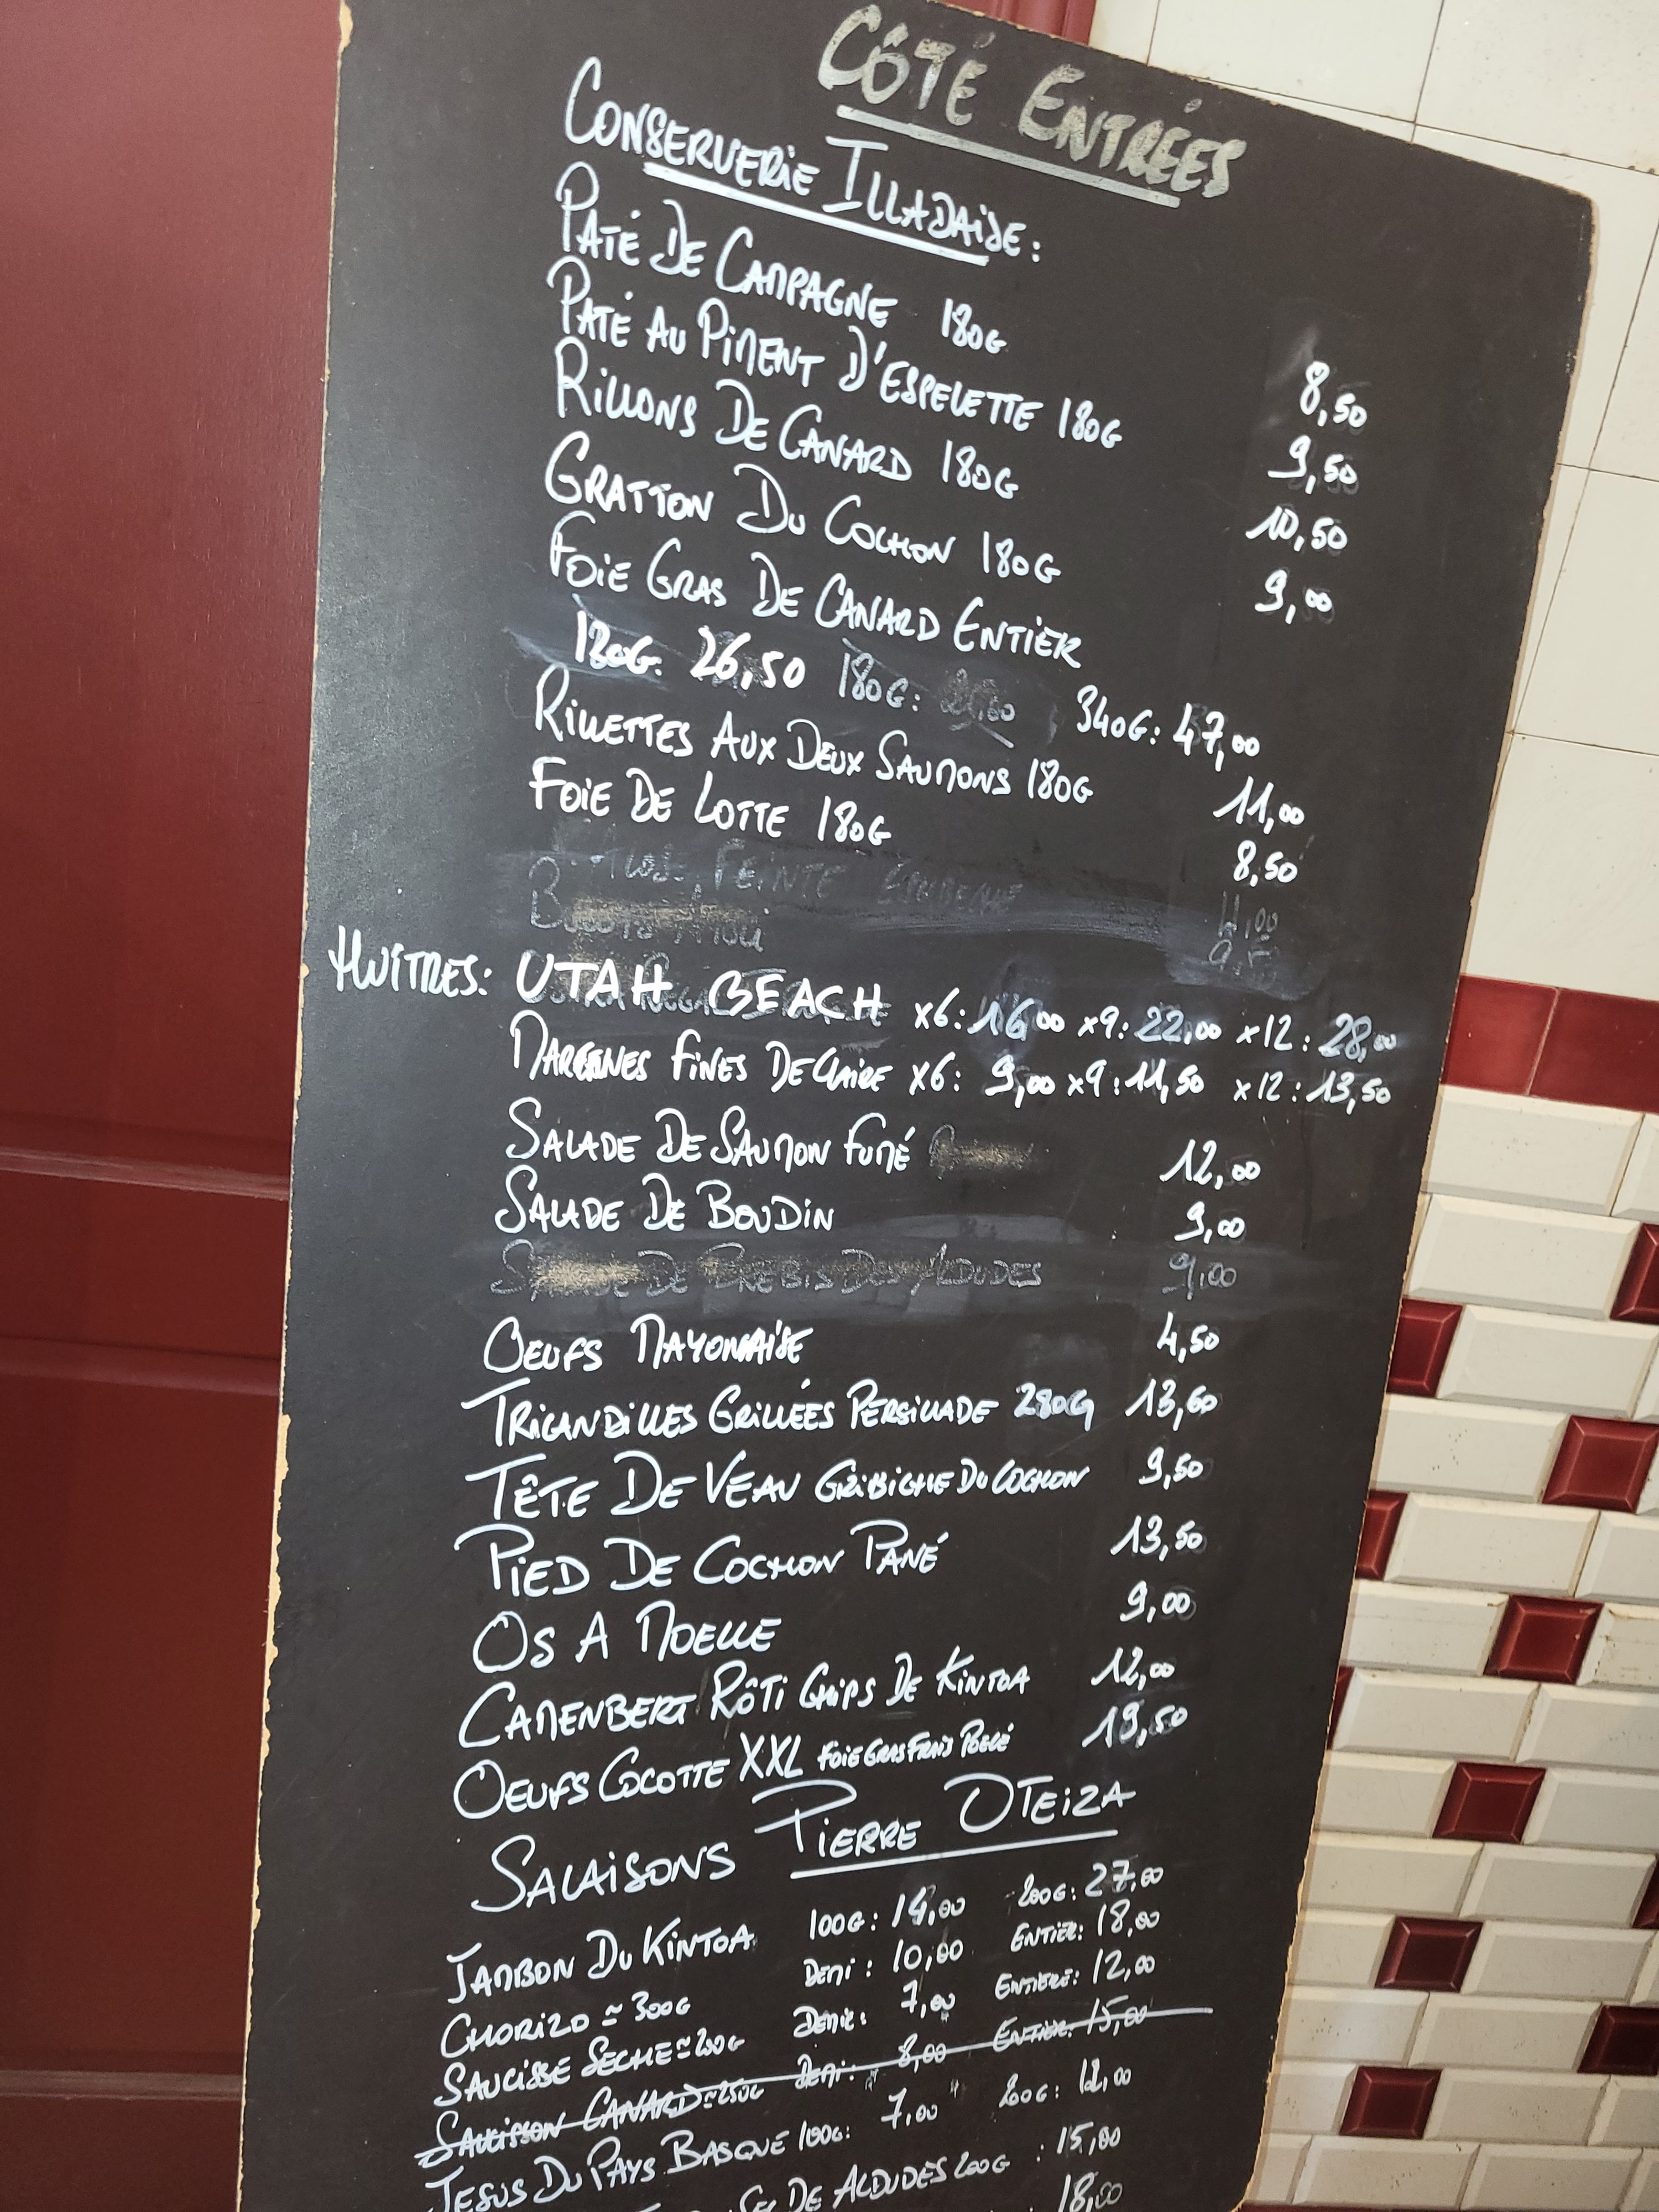 CÔTÉ ENTRÉES
CONSERVERIE ILLADAISE:
PATÉ DE CAMPAGNE 180G 8,50
PATÉ AU PIMENT D'ESPELETTE 180G 9,50
RILLONS DE CANARD 180G 10,50
GRATTON DU COCHON 180G 9,00
FOIE GRAS DE CANARD ENTIER
180G: 26,50 180G: 340G: 47,00
RILLETTES AUX DEUX SAUMONS 180G 11,00
FOIE DE LOTTE 180G 8,50
FEINTE 11,00
HUITRES: UTAH BEACH x6: 16,00 x9: 22,00 x12: 28,00
MARENNES FINES DE CLAIRE x6: 9,00 x9: 11,50 x12: 13,50
SALADE DE SAUMON FUMÉ 12,00
SALADE DE BOUDIN 9,00
DE BREBIS DES ALDUDES 9,00
OEUFS MAYONNAISE 4,50
TRICANDILLES GRILLÉES PERSILLADE 280G 13,60
TÊTE DE VEAU GRIBICHE DU COCHON 9,50
PIED DE COCHON PANÉ 13,50
OS A MOELLE 9,00
CAMENBERT RÔTI CHIPS DE KINTOA 12,00
OEUFS COCOTTE XXL FOIE GRAS FRAIS POELÉ 19,50
SALAISONS PIERRE OTEIZA
JAMBON DU KINTOA 100G: 14,00 200G: 27,00
CHORIZO ≃ 300G DEMI: 10,00 ENTIER: 18,00
SAUCISSE SECHE ≃ 200G DEMIE: 7,00 ENTIERE: 12,00
SAUCISSON CANARD ≃ 250G DEMI: 8,00 ENTIER: 15,00
JESUS DU PAYS BASQUE 100G: 7,00 200G: 12,00
DE ALDUDES 200G : 15,00
18,00